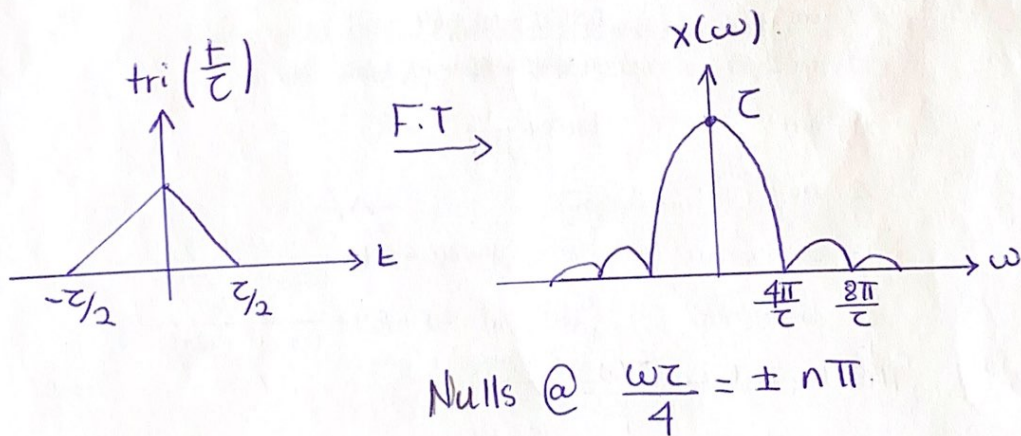 tri (t/τ)
-τ/2
τ/2
t
F.T
X(ω)
τ
4π/τ
8π/τ
ω
Nulls @ ωτ/4 = ± nπ.